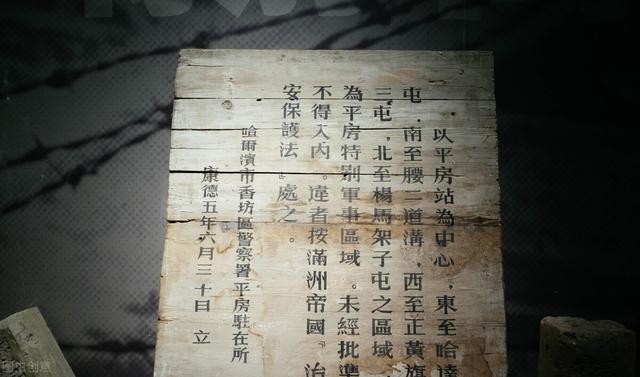 以平房站為中心，東至哈達
屯，南至腰二道溝，西至正黃旗
三屯，北至楊馬架子屯之區域，
為平房特別軍事區域。未經批準
不得入內。違者按滿洲帝國『治
安保護法』處之。
哈爾濱市香坊區警察署平房駐在所
康德五年六月三十日 立
图虫创意